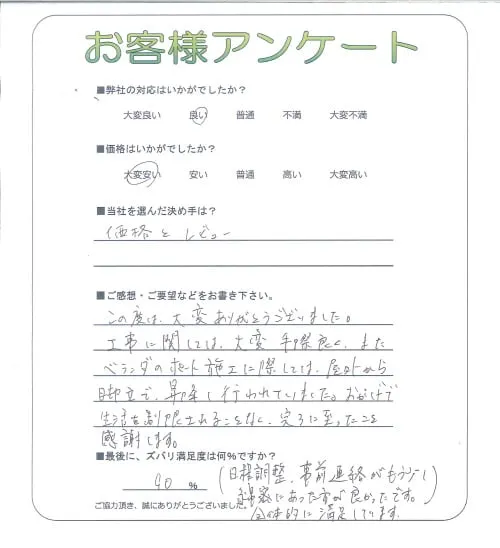 お客様アンケート
■弊社の対応はいかがでしたか?
大変良い 良い 普通 不満 大変不満
■価格はいかがでしたか?
大変安い 安い 普通 高い 大変高い
■当社を選んだ決め手は?
価格とレビュー
■ご感想・ご要望などをお書き下さい。
この度は、大変ありがとうございました。
工事に関しては、大変手際良く、また
ベランダのボード施工に際しては、屋外から
脚立で、昇降し行われていました。おかげで
生活を制限されることなく、完了に至ったことを
感謝します。
■最後に、ズバリ満足度は何%ですか?
90 %
(日程調整、事前連絡がもう少し
綿密にあった方が良かったです。)
全体的に満足しています。
ご協力頂き、誠にありがとうございました。